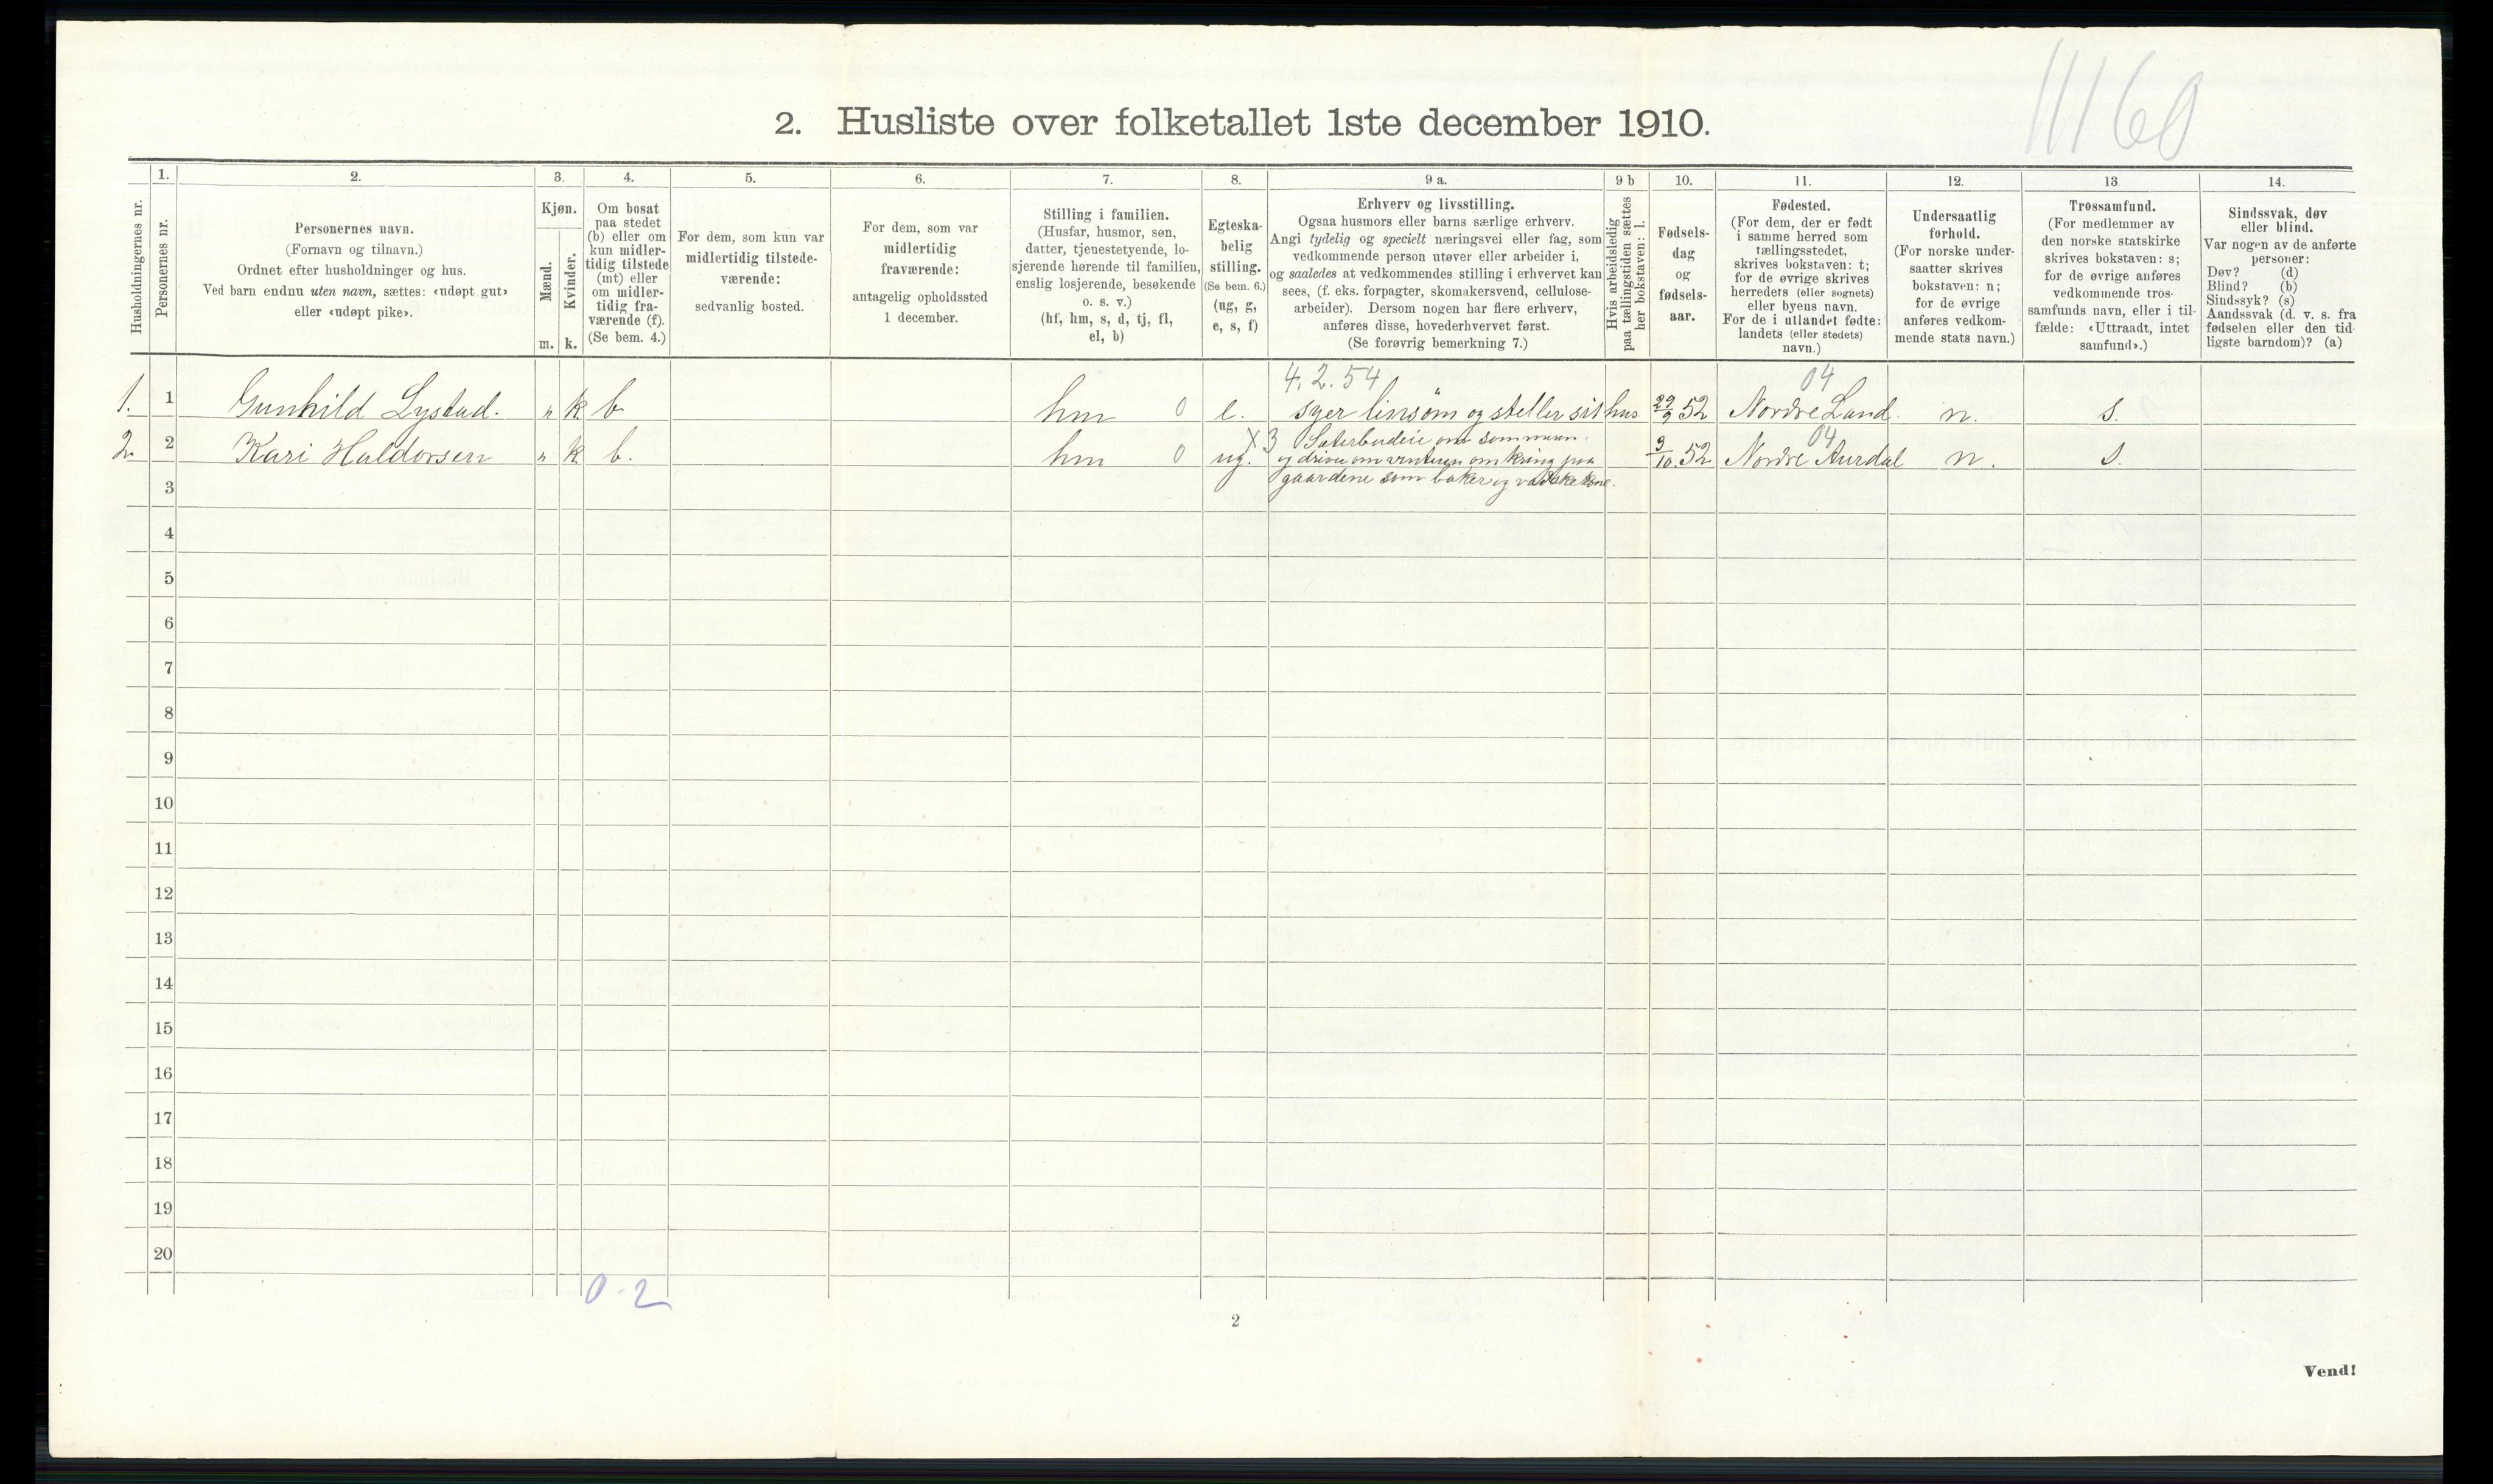 1160
2. Husliste over folketallet 1ste december 1910.
Husholdningernes nr.
1.
Personernes nr.
2.
Personernes navn.
(Fornavn og tilnavn.)
Ordnet efter husholdninger og hus.
Ved barn endnu uten navn, sættes: «udøpt gut»
eller «udøpt pike».
3.
Kjøn.
Mænd.
Kvinder.
m. k.
4.
Om bosat
paa stedet
(b) eller om
kun midler-
tidig tilstede
(mt) eller
om midler-
tidig fra-
værende (f).
(Se bem. 4.)
5.
For dem, som kun var
midlertidig tilstede-
værende:
sedvanlig bosted.
6.
For dem, som var
midlertidig
fraværende:
antagelig opholdssted
1 december.
7.
Stilling i familien.
(Husfar, husmor, søn,
datter, tjenestetyende, lo-
sjerende hørende til familien,
enslig losjerende, besøkende
o. s. v.)
(hf, hm, s, d, tj, fl,
el, b)
8.
Egteska-
belig
stilling.
(Se bem. 6.)
(ug, g,
e, s, f)
9 a.
Erhverv og livsstilling.
Ogsaa husmors eller barns særlige erhverv.
Angi tydelig og specielt næringsvei eller fag, som
vedkommende person utøver eller arbeider i,
og saaledes at vedkommendes stilling i erhvervet kan
sees, (f. eks. forpagter, skomakersvend, cellulose-
arbeider). Dersom nogen har flere erhverv,
anføres disse, hovederhvervet først.
(Se forøvrig bemerkning 7.)
9 b
Hvis arbeidsledig
paa tællingstiden sættes
her bokstaven: l.
10.
Fødsels-
dag
og
fødsels-
aar.
11.
Fødested.
(For dem, der er født
i samme herred som
tællingsstedet,
skrives bokstaven: t;
for de øvrige skrives
herredets (eller sognets)
eller byens navn.
For de i utlandet fødte:
landets (eller stedets)
navn.)
12.
Undersaatlig
forhold.
(For norske under-
saatter skrives
bokstaven: n;
for de øvrige
anføres vedkom-
mende stats navn.)
13
Trossamfund.
(For medlemmer av
den norske statskirke
skrives bokstaven: s;
for de øvrige anføres
vedkommende tros-
samfunds navn, eller i til-
fælde: «Uttraadt, intet
samfund».)
14.
Sindssvak, døv
eller blind.
Var nogen av de anførte
personer:
Døv? (d)
Blind? (b)
Sindssyk? (s)
Aandssvak (d. v. s. fra
fødselen eller den tid-
ligste barndom)? (a)
4.2.54 04
1. 1 Gunhild Lystad. " k b hm 0 e. syer linsöm og steller sit hus 29/9 52 Nordre Land. n. s.
X3 Sæterbudeie om sommeren 04
2. 2 Kari Haldorsen " k b. hm 0 ug. og driver om vinteren omkring paa 9/10.52 Nordre Aurdal n. s.
3 gaardene som baker og vaskekone.
4
5
6
7
8
9
10
11
12
13
14
15
16
17
18
19
20
0-2
2
Vend!